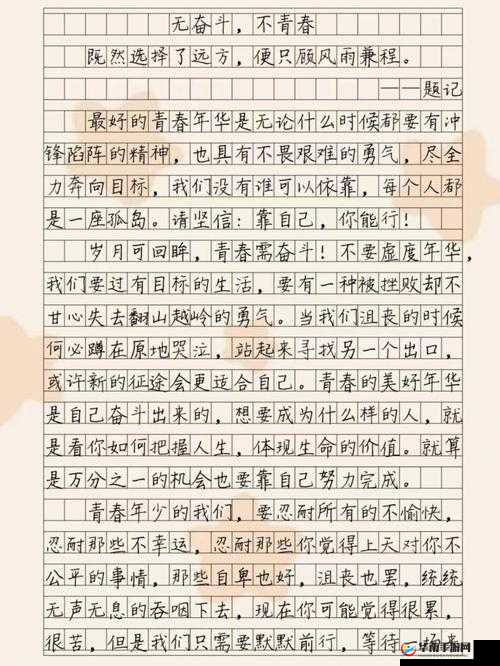 无奋斗，不青春
既然选择了远方，便只顾风雨兼程。
——题记
最好的青春年华是无论什么时候都要有冲
锋陷阵的精神，也具有不畏艰难的勇气，尽全
力奔向目标，我们没有谁可以依靠，每个人都
是一座孤岛。请坚信：靠自己，你能行！
岁月可回眸，青春需奋斗！不要虚度年华，
我们要过有目标的生活，要有一种被挫败却不
甘心失去翻山越岭的勇气。当我们沮丧的时候
何必蹲在原地哭泣，站起来寻找另一个出口，
或许新的征途会更适合自己。青春的美好年华
是自己奋斗出来的，想要成为什么样的人，就
是看你如何把握人生，体现生命的价值。就算
是万分之一的机会也要靠自己努力完成。
青春年少的我们，要忍耐所有的不愉快，
忍耐那些不幸运，忍耐那些你觉得上天对你不
公平的事情，那些自卑也好，沮丧也罢，统统
无声无息的吞咽下去，现在你可能觉得很累，
很苦，但是我们只需要默默前行，等待一场
华南手游网